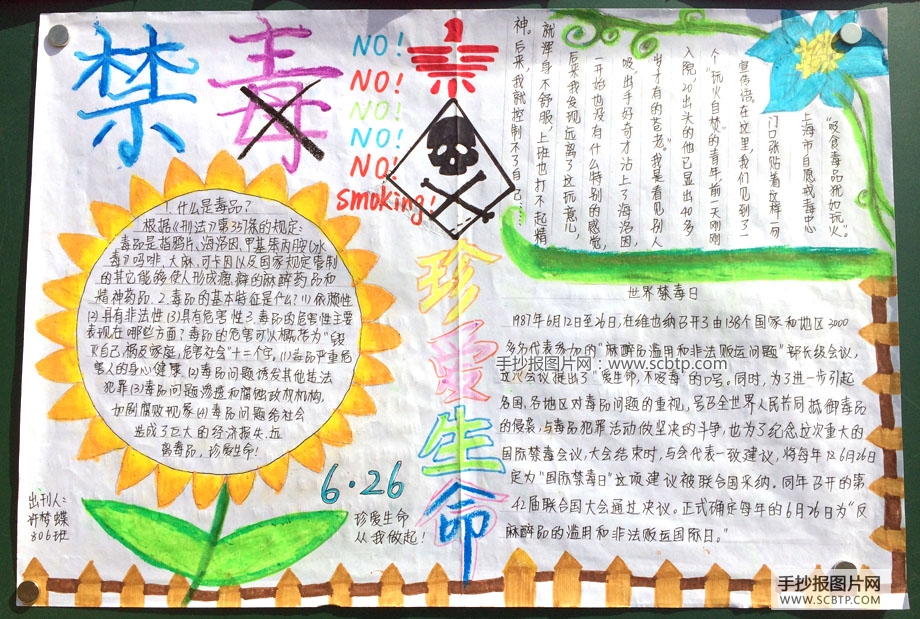 禁毒
NO!
NO!
NO!
NO!
NO!
smoking!
珍爱生命
“吸食毒品犹如玩火。”
上海市自愿戒毒中心
门口张贴着这样一句
宣传语在这里,我们见到了一
个“玩火自焚”的青年,前一天刚刚
入院,20出头的他已显出40多
岁才有的苍老。“我是看见别人
吸,出于好奇才沾上了海洛因,
一开始也没有什么特别的感觉,
后来我发现远离了这玩意儿,
就浑身不舒服,上班也打不起精
神。后来,我就控制不了自己……
1.什么是毒品?
根据《刑法》第357条的规定:
毒品是指鸦片、海洛因、甲基苯丙胺(冰
毒)、吗啡、大麻、可卡因以及国家规定管制
的其它能够使人形成瘾癖的麻醉药品和
精神药品。2.毒品的基本特征是什么?(1)依赖性
(2)具有非法性(3)具有危害性3.毒品的危害性主要
表现在哪些方面?毒品的危害可以概括为“毁
灭自己,祸及家庭,危害社会”十二个字,(1)毒品严重危
害人的身心健康.(2)毒品问题诱发其他违法
犯罪(3)毒品问题渗透和腐蚀政权机构,
如削腐败现象(4)毒品问题给社会
造成了巨大的经济损失,远
离毒品,珍爱生命!
世界禁毒日
1987年6月12日至26日,在维也纳召开了由138个国家和地区2000
多名代表参加的“麻醉品滥用和非法贩运问题”部长级会议,
这次会议提出了“爱生命,不吸毒”的口号。同时,为了进一步引起
各国、各地区对毒品问题的重视,号召全世界人民共同抵御毒品
的侵袭,与毒品犯罪活动做坚决的斗争,也为了纪念这次重大的
国际禁毒会议,大会结束时,与会代表一致建议,将每年的6月26日
定为“国际禁毒日”这项建议被联合国采纳。同年召开的第
42届联合国大会通过决议。正式确定每年的6月26日为“反
麻醉品的滥用和非法贩运国际日。
6·26
珍爱生命
从我做起!
出刊人:
许梦蝶
806班
手抄报图片网
www.scbtp.com
手抄报图片网
WWW.SCBTP.COM